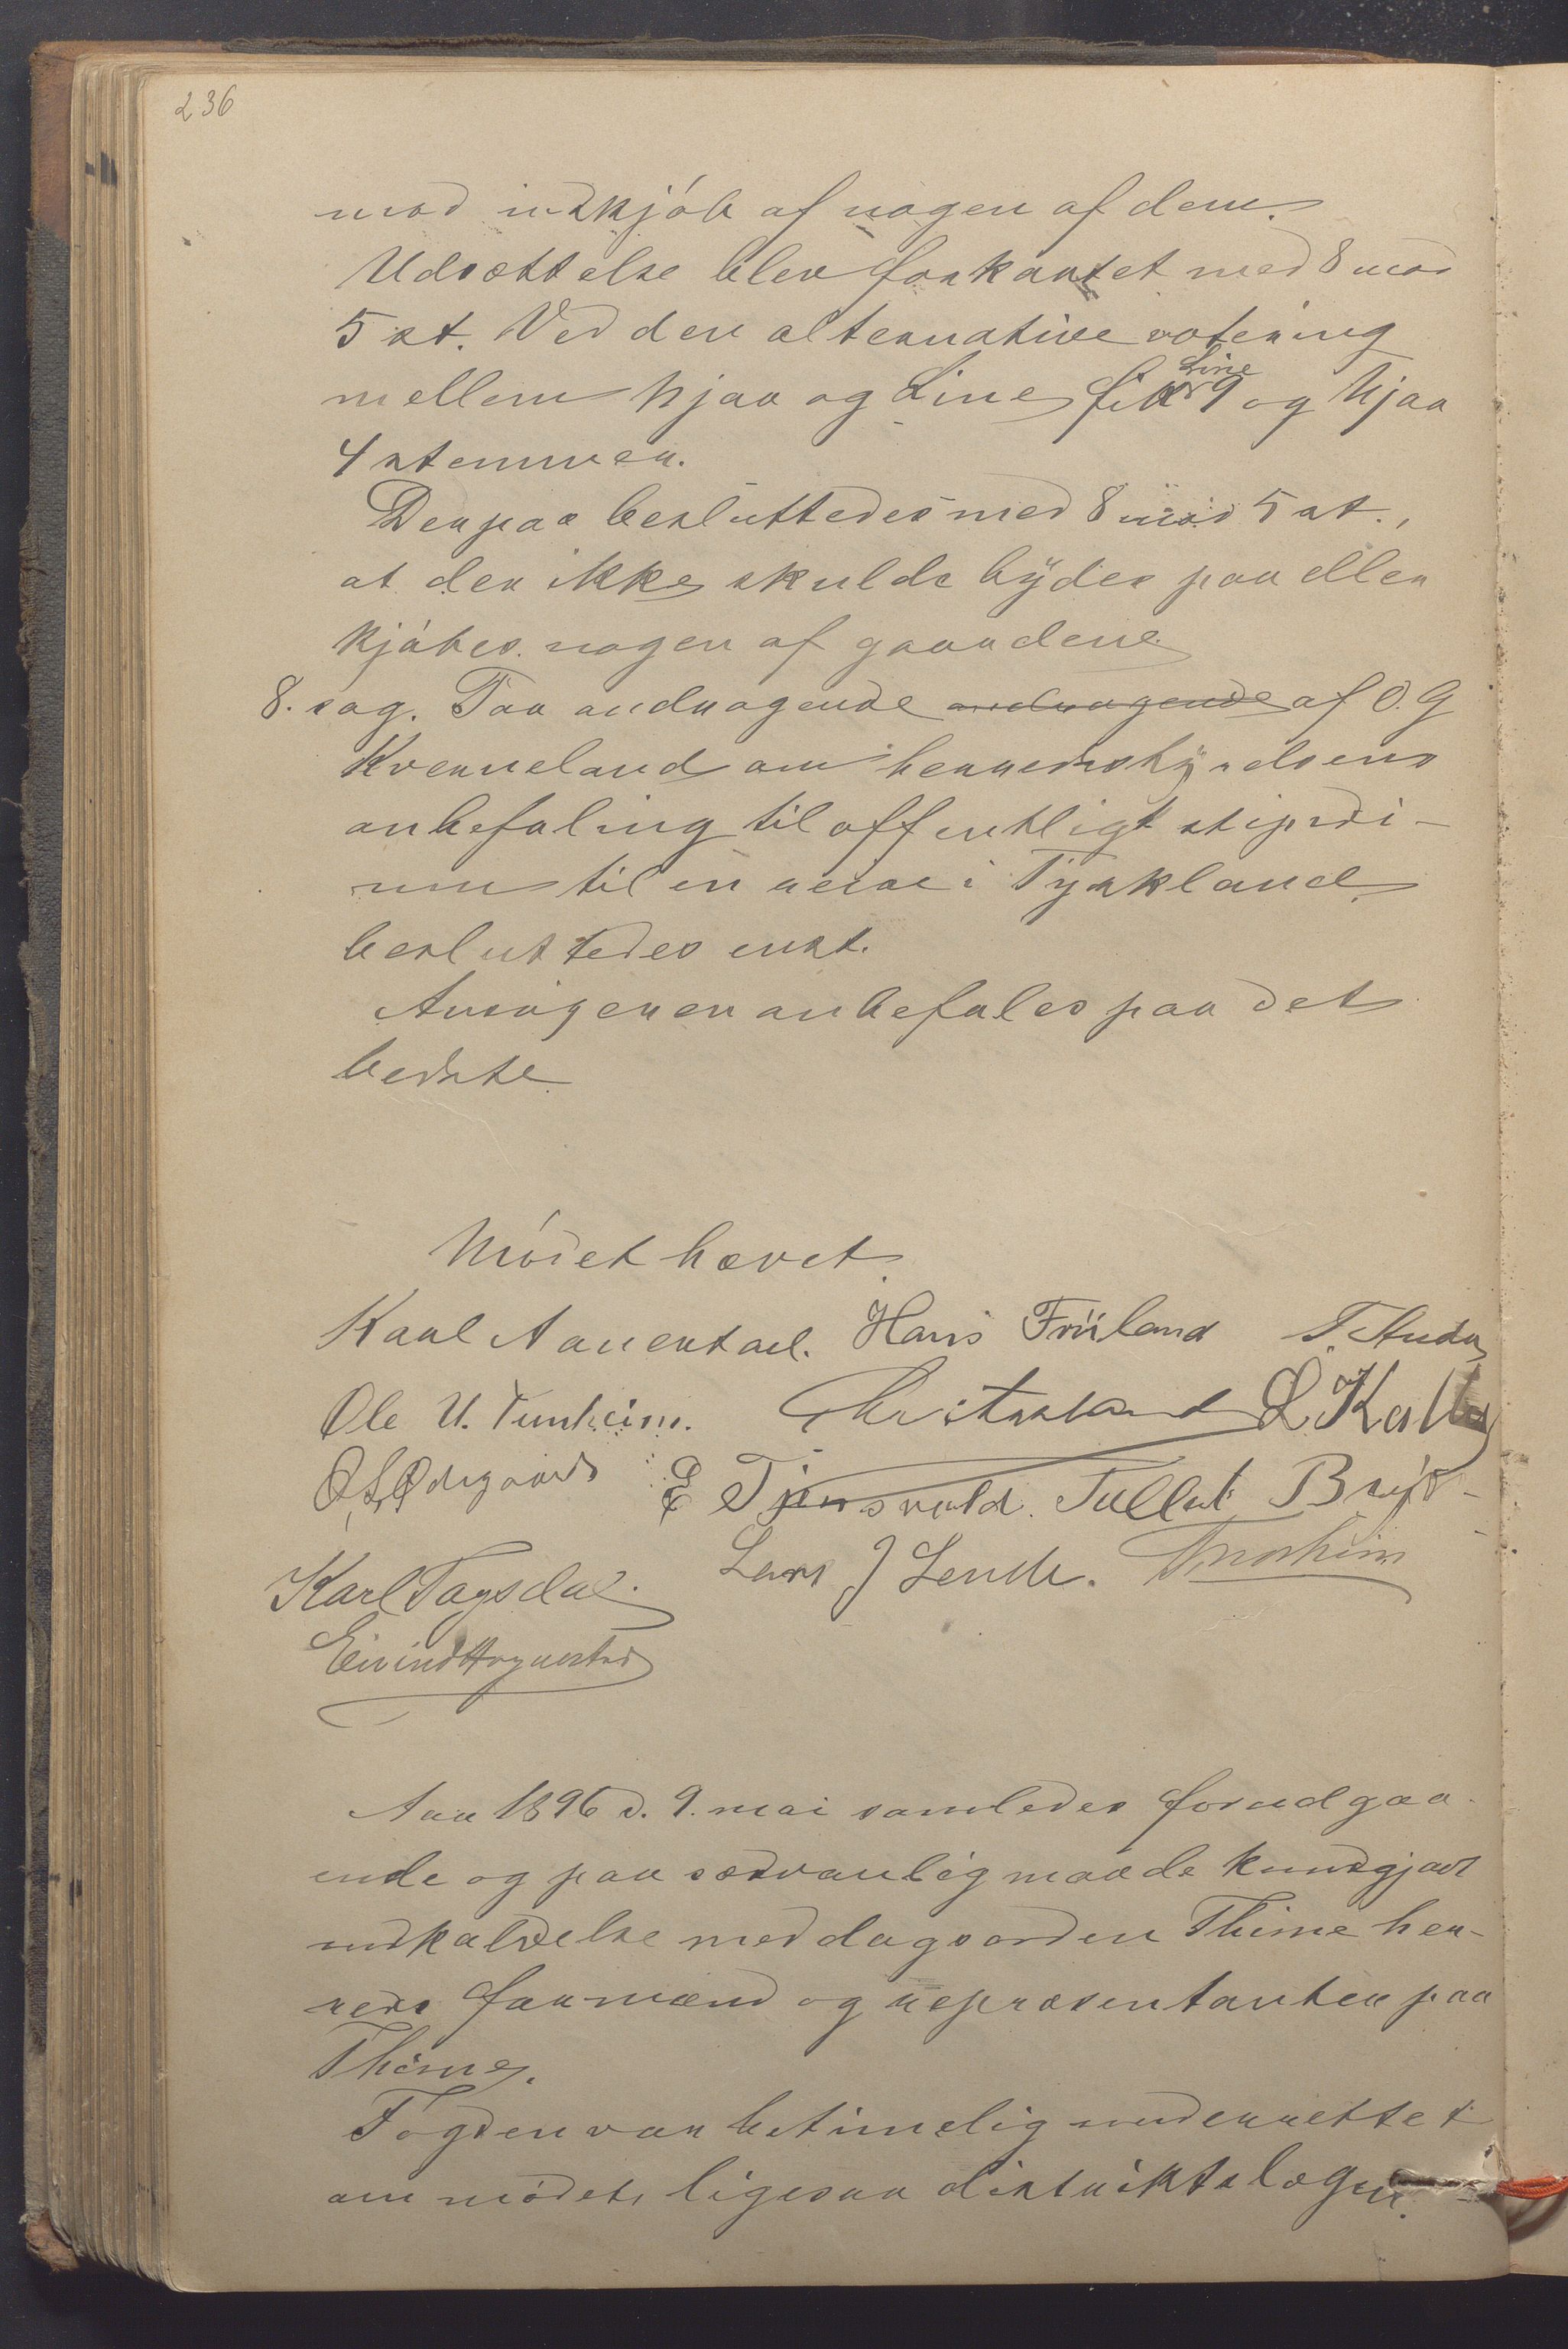 236
mod indkjøb af nogen af dem.
Udsættelse blev forkastet med 8 mod
5 st. Ved den alternative votering
mellem Njaa og Line fik Line 9 og Njaa
4 stemmer.
Derpaa besluttedes med 8 mod 5 st.,
at der ikke skulde bydes paa eller
kjøbes nogen af gaardene.
8. sag. Paa andragende andragende af O. G
Kverneland om herredsstyrelsens
anbefaling til offentligt stipendi-
um til en reise i Tyskland
besluttedes enst.
Ansøgeren anbefales paa det
bedste.
Mødet hævet.
Karl Aarrestad. Hans Friiland
Ole U. Tunheim.
O. S. Ødegaard E Tjensvold. Tollef Bryne
Karl Tagsdal. Lars J Lende.
Eivind Hognestad
Aar 1896 d. 9. mai samledes forudgaa-
ende og paa sædvanlig maade kundgjort
indkaldelse med dagsorden Thime her-
reds formænd og repræsentanter paa
Thime.
Fogden var betimelig underrettet
om mødet, ligesaa distriktslægen.